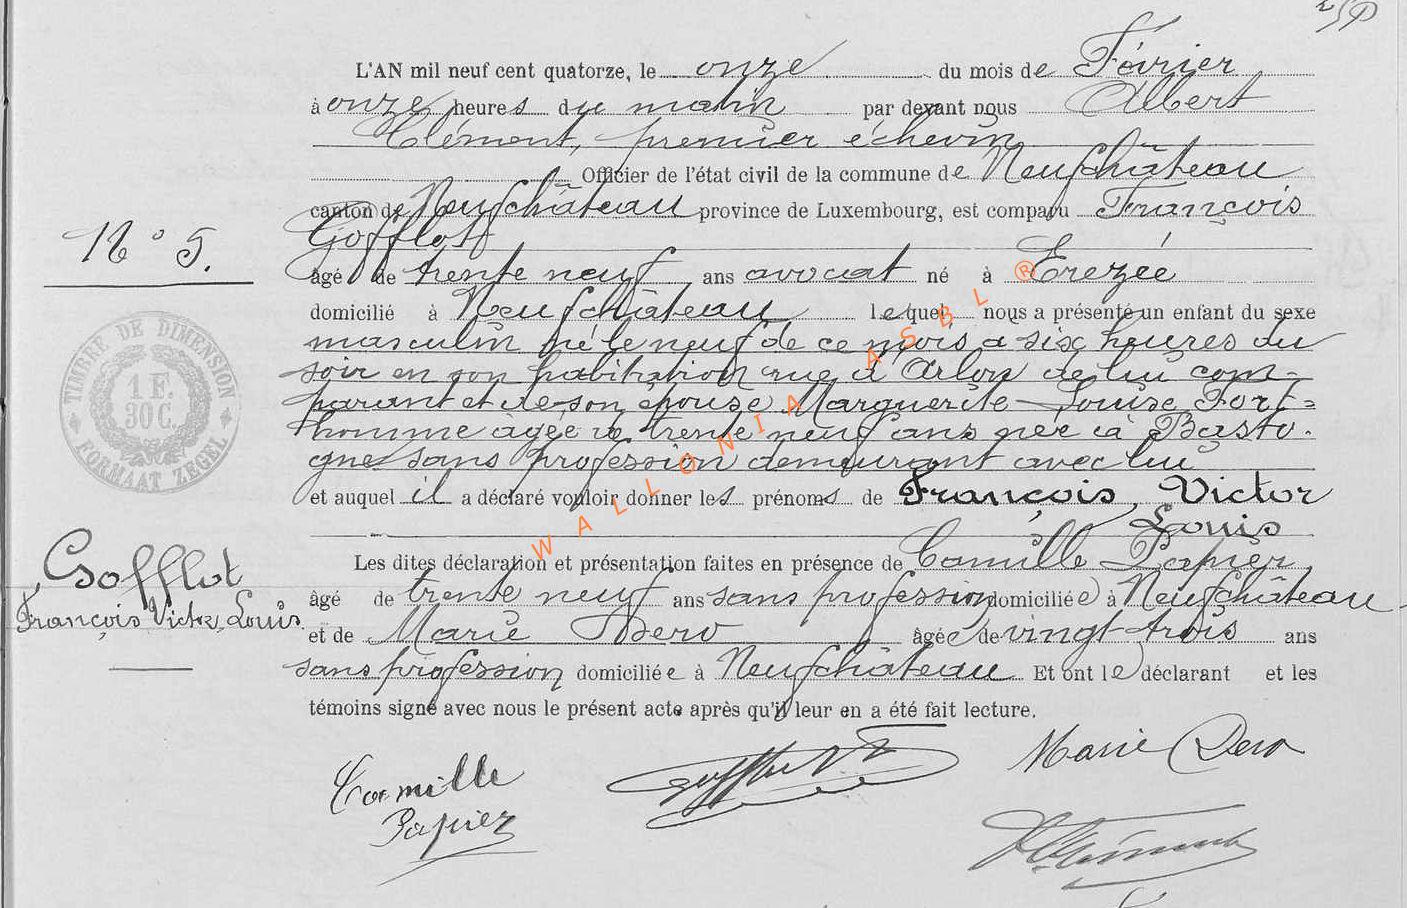 L'AN mil neuf cent quatorze, le onze du mois de Février
à onze heures du matin par devant nous Albert
Clément, premier échevin
Officier de l'état civil de la commune de Neufchâteau
canton de Neufchâteau province de Luxembourg, est comparu François
Gofflot
N° 5.
âgé de trente neuf ans avocat né à Erezée
domicilié à Neufchâteau lequel nous a présenté un enfant du sexe
masculin né le neuf de ce mois à six heures du
soir en son habitation rue d'Arlon de lui com-
parant et de son épouse Marguerite Louise Fort=
homme âgée de trente neuf ans née à Basto-
gne sans profession demeurant avec lui
et auquel il a déclaré vouloir donner les prénoms de François, Victor
Louis
TIMBRE DE DIMENSION
1 F.
30 C.
FORMAAT ZEGEL
WALLONIA ASBL ®
Gofflot
François Victor Louis
Les dites déclaration et présentation faites en présence de Camille Papier
âgé de trente neuf ans sans profession domiciliée à Neufchâteau
et de Marie Dero âgée de vingt trois ans
sans profession domiciliée à Neufchâteau Et ont le déclarant et les
témoins signé avec nous le présent acte après qu'il leur en a été fait lecture.
Camille
Papier
Gofflot
Marie Dero
A Clément